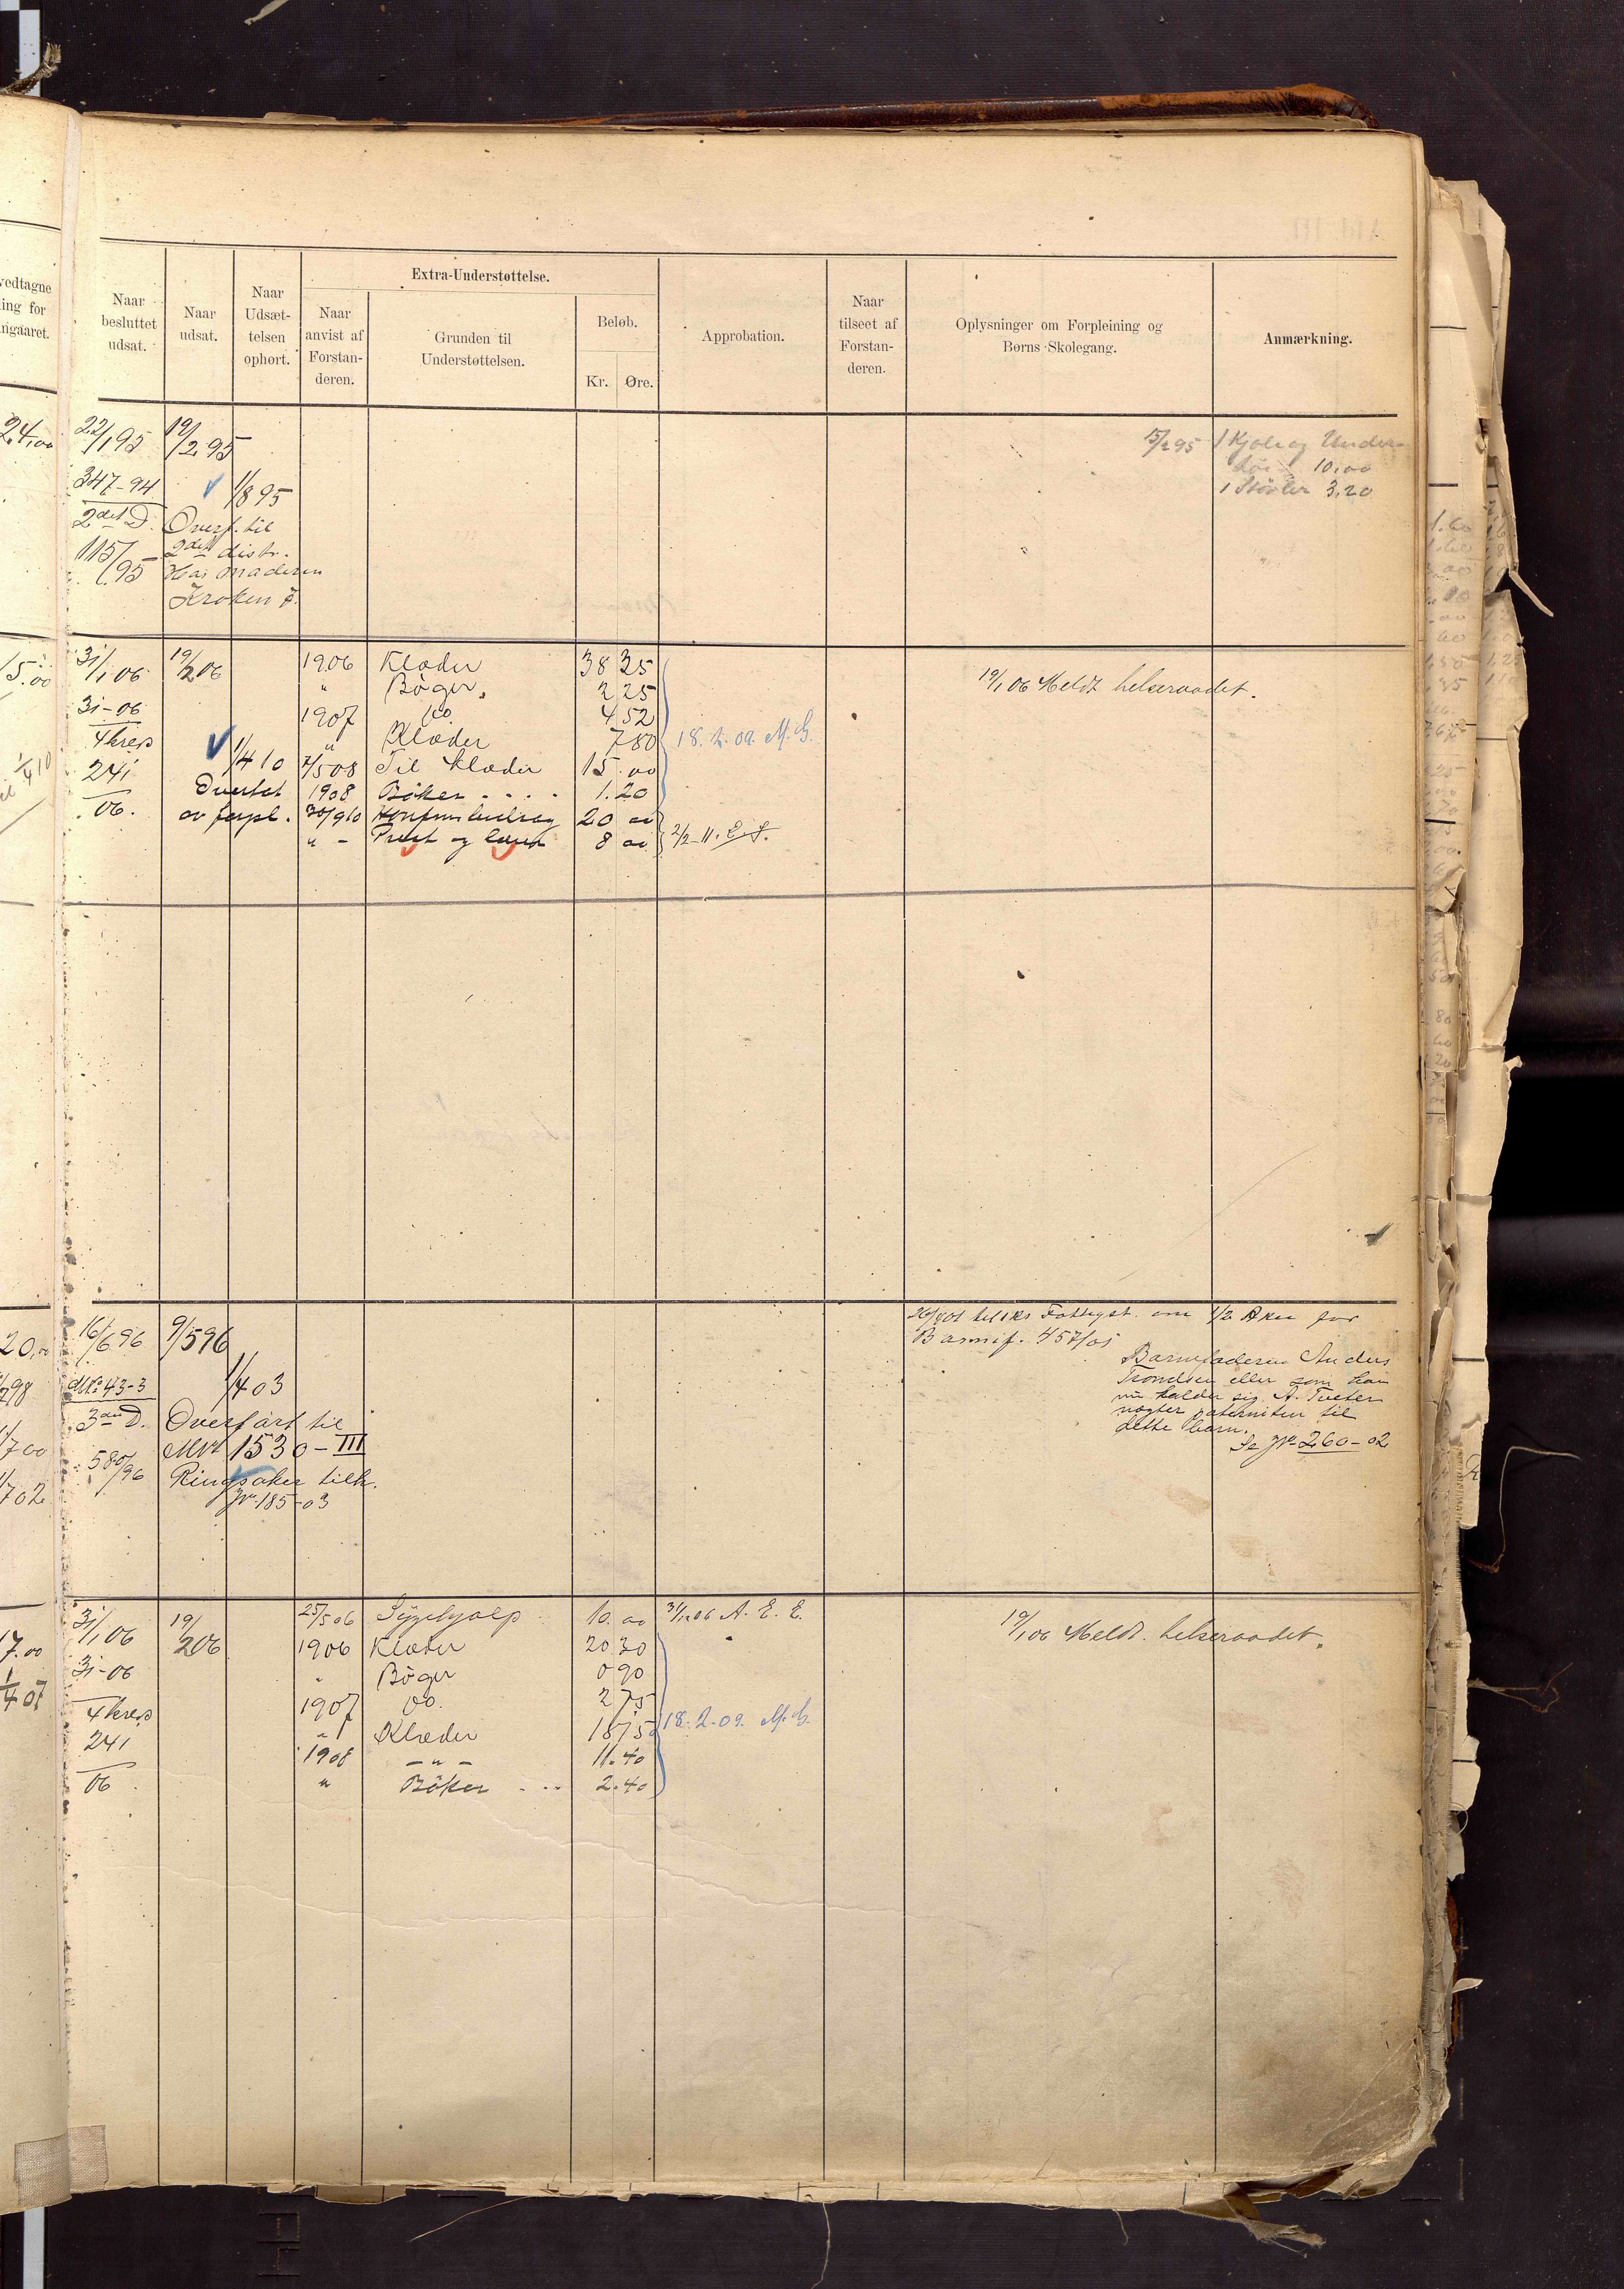 vedtagne
ing for
Naar besluttet udsat.
Naar udsat.
Naar Udsæt- telsen ophørt.
Extra-Understøttelse.
Naar anvist af Forstan- deren.
Grunden til Understøttelsen.
Beløb.
Kr. Øre.
Approbation.
Naar tilseet af Forstan- deren.
Oplysninger om Forpleining og Børns Skolegang.
Anmærkning.
24,00
22/1 95 19/2 95
15/2 95 1 Kjole og Under-
10.00
1 Støvler 3,20
347-94 1/8 95
2det D. Overf. til
115/95 2det distr.
Hos moderen
Kroken
15.00
31/1 06 19/2 06 1906 Klæder 38 35
" Bøger 2 25
19/1 06 Meldt helseraadet.
31-06 1907 do 4 52
4 kreds " Klæder 7 80
18.2.09. M.G.
241 1/4 10 7/5 08 Til klæder 15.00
06. Overtat 1908 Bøker 1.20
av forpl. 30/9 10 Konfirm. bidrag 20 00
" - Prest og 8 00
2/2-11.
20,00
16/6 96 9/5 96
1/2 Aker for
457/05
Barnefaderen Anders
Trondsen eller som han
nu kalder sig A. Tveter
nægter paterniten til
dette barn.
Se Jr. 260-02
43-3 1/4 03
3die D. Overført til
580/96 1530-III
Ringsaker tilh.
Jr. 185-03
17.00
31/1 06 19/2 06 25/5 06 Sygehjælp 10.00 31/12 06 A. E. E.
1906 Klæder 20 30
19/1 06 Meldt. helseraadet.
31-06 " Bøger 0 90
4 kreds 1907 do. 2 75
241 " Klæder 18 75 18.2.09. M.G.
1908 - " - 11.40
06 " Bøker 2.40
1/4 07